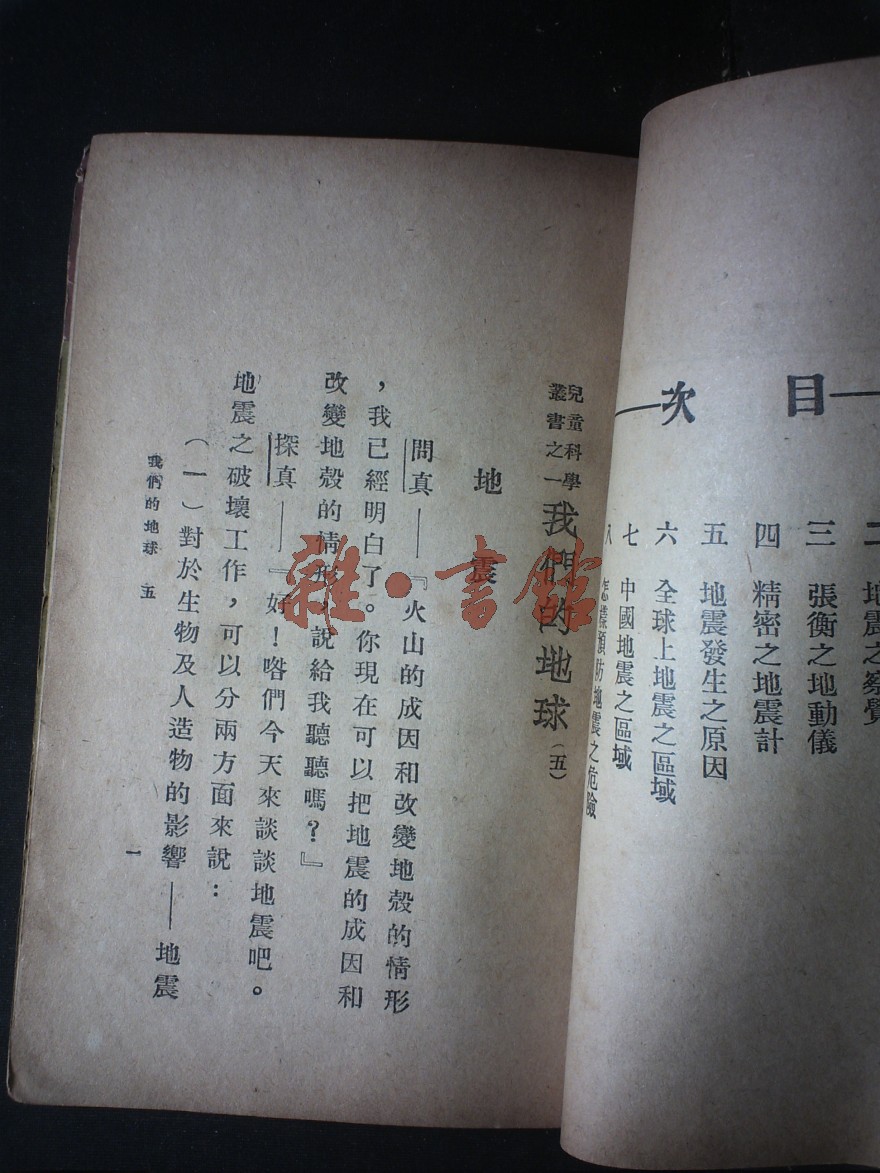 目次
二 地震之察覺
三 張衡之地動儀
四 精密之地震計
五 地震發生之原因
六 全球上地震之區域
七 中國地震之區域
八 怎樣預防地震之危險
兒童科學
叢書之一
我們的地球(五)
地震
問真——『火山的成因和改變地殼的情形
，我已經明白了。你現在可以把地震的成因和
改變地殼的情形，說給我聽聽嗎？』
探真——『好！喒們今天來談談地震吧。
地震之破壞工作，可以分兩方面來說：
(一)對於生物及人造物的影響——地震
我們的地球 五
一
雜·書館